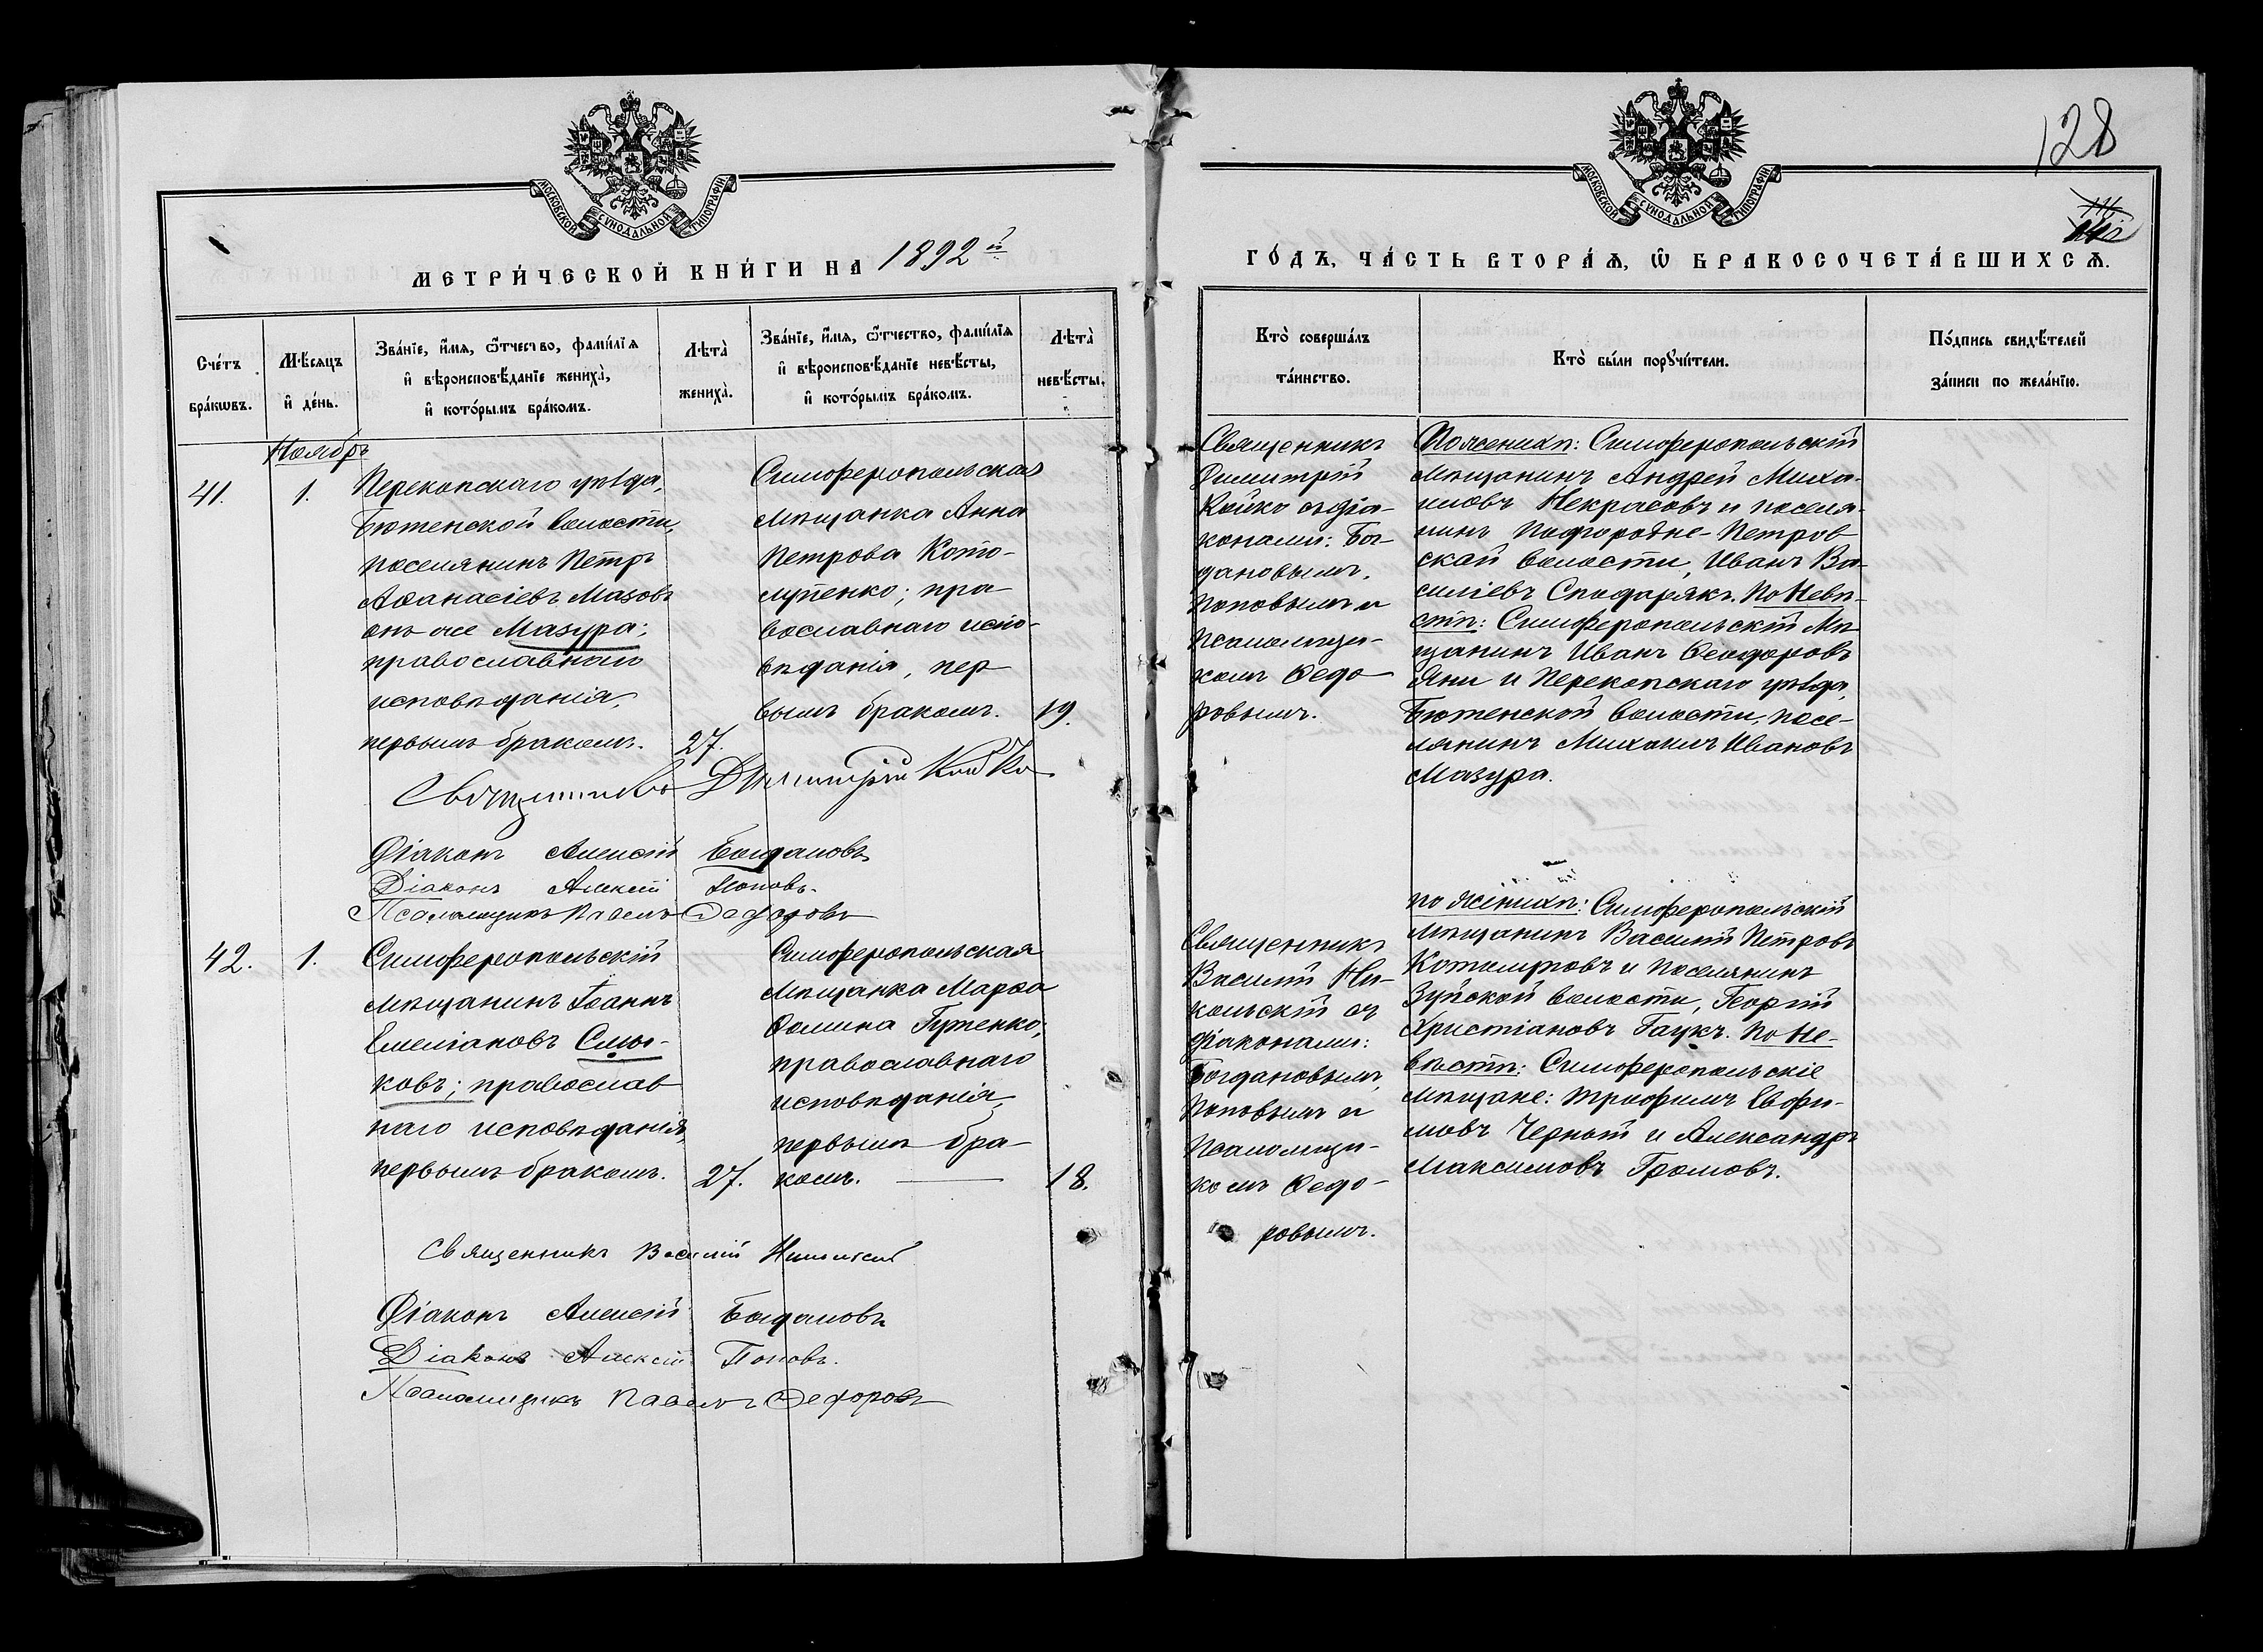 128
МОСКОВСКОЙ СѴНОДАЛЬНОЙ ТИПОГРАФІИ
МОСКОВСКОЙ СѴНОДАЛЬНОЙ ТИПОГРАФІИ
МЕТРИ́ЧЕСКОЙ КНИ́ГИ НА 1892й
ГО́ДЪ, ЧА́СТЬ ВТОРА́Ѧ, Ѿ БРАКОСОЧЕТА́ВШИХСѦ.
Сче́тъ
бра́кωвъ.
Мѣ́сяцъ
и҆ де́нь.
Зва́нїе, и҆́мѧ, ѻ҆́тчество, фами́лїѧ
и҆ вѣроисповѣ́данїе жениха̀,
и҆ кото́рымъ бра́комъ.
Лѣта̀
жениха̀.
Зва́нїе, и҆́мѧ, ѻ҆́тчество, фами́лїѧ
и҆ вѣроисповѣ́данїе невѣ́сты,
и҆ кото́рымъ бра́комъ.
Лѣта̀
невѣ́сты.
Кто̀ соверша́лъ
та́инство.
Кто̀ бы́ли порꙋчи́тели.
По́дпись свидѣ́телей
за́писи по жела́нїю.
Ноябрь
41.
1.
Перекопскаго уѣзда,
Бютенской волости,
поселянинъ Петръ
Аѳанасіевъ Мазовъ
онъ же Мазура;
православнаго
исповѣданія,
первымъ бракомъ.
27.
Симферопольская
мѣщанка Анна
Петрова Кото-
лупенко; пра-
вославнаго испо-
вѣданія, пер
вымъ бракомъ.
19.
Священникъ
Димитрій
Койко съ діа-
конами: Бог-
дановымъ,
Поповымъ и
псаломщи-
комъ Ѳедо-
ровымъ.
По женихѣ: Симферопольскій
мѣщанинъ Андрей Миха-
иловъ Некрасовъ и поселя-
нинъ Подгородне-Петров
ской волости, Иванъ Ва-
силіевъ Сподарякъ. По Невѣ-
стѣ: Симферопольскій Мѣ
щанинъ Иванъ Ѳеодоровъ
Яни и Перекопскаго уѣзда,
Бютенской волости, посе-
лянинъ Михаилъ Ивановъ
Мазура.
Священникъ Димитрій Койко
Діаконъ Алексій Богдановъ
Діаконъ Алексій Поповъ.
Псаломщикъ Павелъ Ѳедоровъ
42.
1.
Симферопольскій
мѣщанинъ Іоаннъ
Емеліановъ Смы-
ковъ; православ
наго исповѣданія,
первымъ бракомъ.
27.
Симферопольская
мѣщанка Марѳа
Ѳомина Гутенко;
православнаго
исповѣданія,
первымъ бра-
комъ.
18.
Священникъ
Василій Ни-
кольскій съ
діаконами:
Богдановымъ,
Поповымъ и
Псаломщи-
комъ Ѳедо-
ровымъ.
по женихѣ: Симферопольскій
мѣщанинъ Василій Петровъ
и поселянинъ
Зуйской волости, Георгій
Христіановъ Гаукъ. По Не-
вѣстѣ: Симферопольскіе
мѣщане: Трифимъ Евфи-
мовъ Черный и Александръ
Максимовъ Громовъ.
Священникъ Василій Никольскій
Діаконъ Алексій Богдановъ
Діаконъ Алексій Поповъ.
Псаломщикъ Павелъ Ѳедоровъ